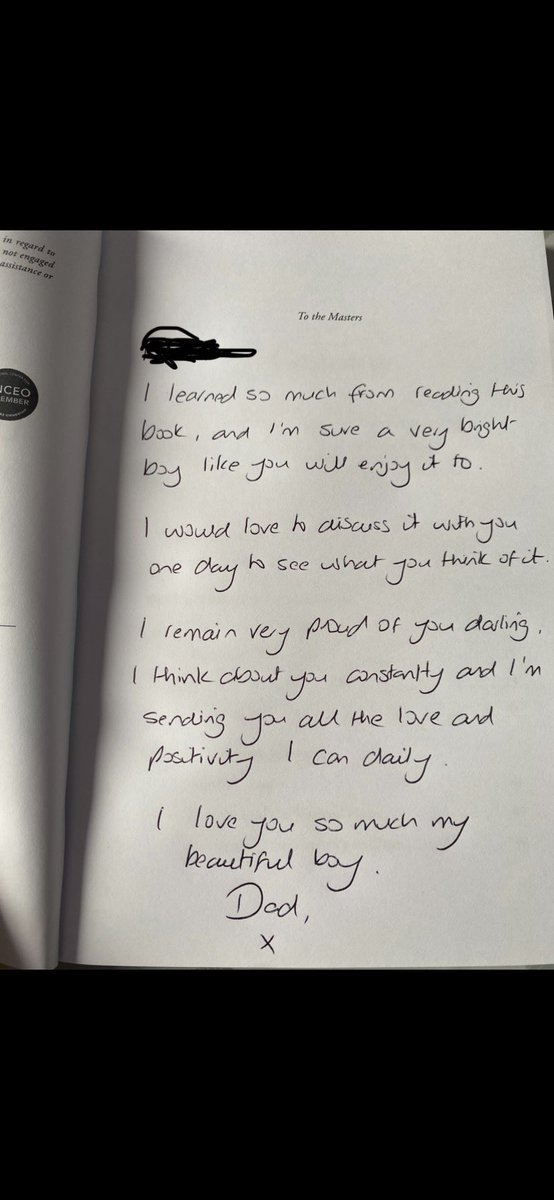 in regard to
not engaged
assistance or
NCEO
EMBER
To the Masters
I learned so much from reading this
book, and I'm sure a very bright
boy like you will enjoy it to.
I would love to discuss it with you
one day to see what you think of it.
I remain very proud of you darling,
I think about you constantly and I'm
sending you all the love and
positivity I can daily.
I love you so much my
beautiful boy.
Dad,
x